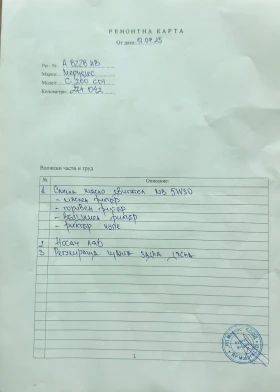 РЕМОНТНА КАРТА
От дата:
Рег. №:
Марка: Мерцедес
Модел: C 200 CDI
Километри: 274 042
Вложени части и труд
№ Описание:
1 Смяна масло двигател MB 5W30
- маслен филтър
- горивен филтър
- въздушен филтър
- филтър купе
2 Носач ляв
3 Регулираща щанга задна дясна
1